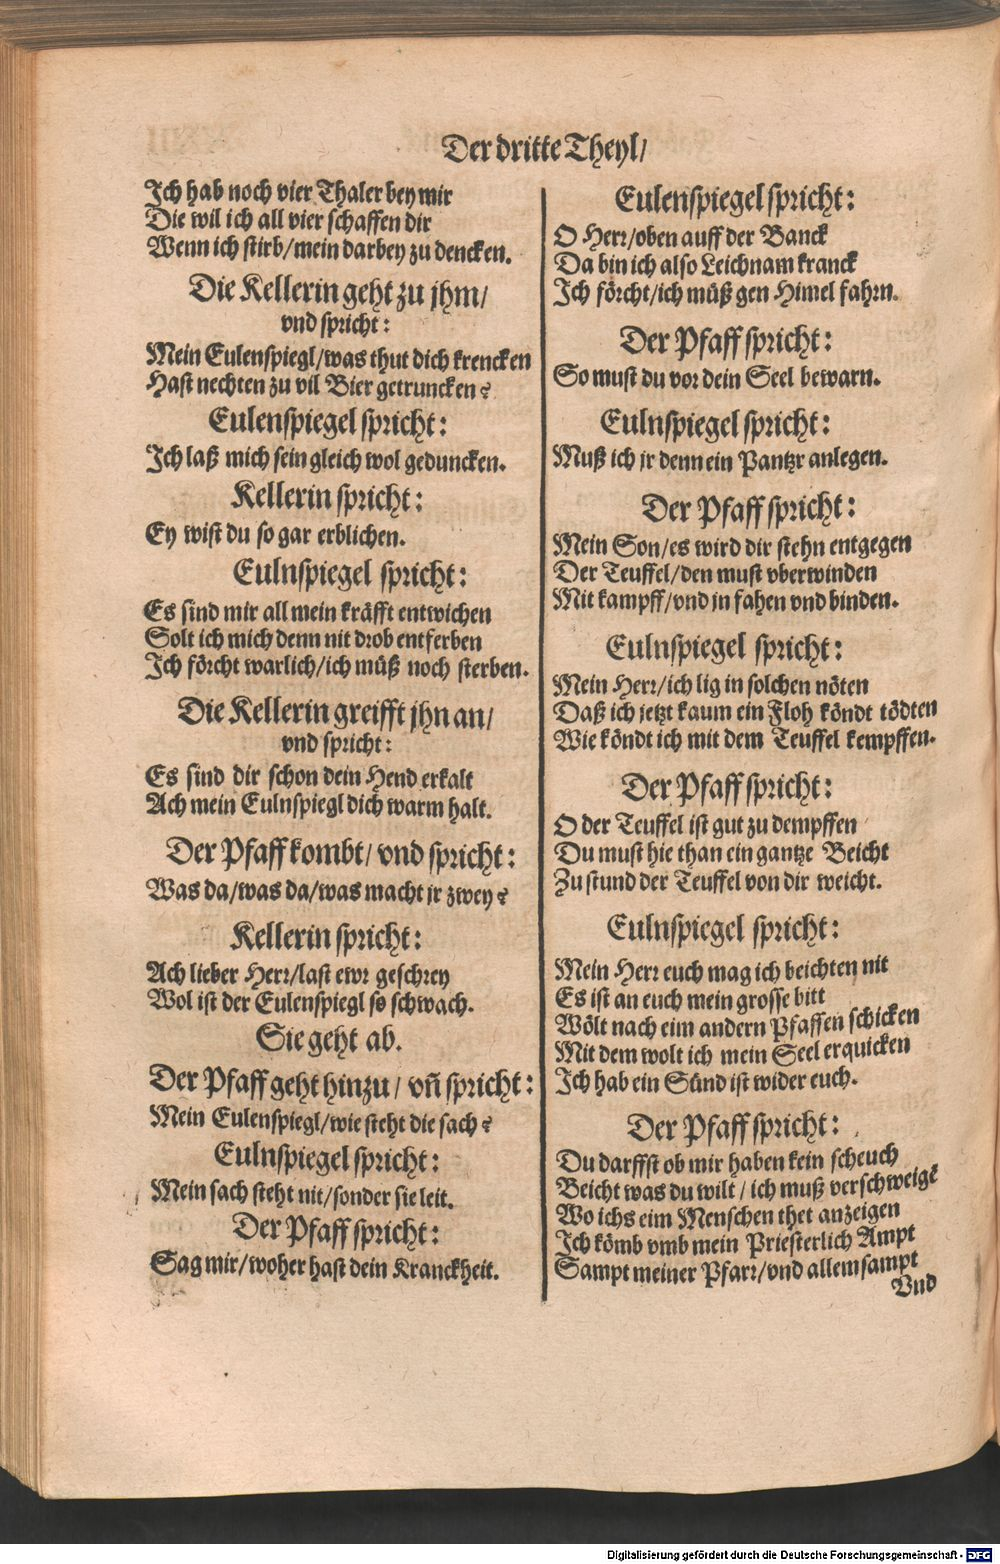 Der dritte Theyl/
Ich hab noch vier Thaler bey mir
Die wil ich all vier schaffen dir
Wenn ich stirb/mein darbey zu dencken.
Die Kellerin geht zu jhm/
vnd spricht:
Mein Eulenspiegl/was thut dich krencken
Hast nechten zu vil Bier getruncken?
Eulenspiegel spricht:
Ich laß mich sein gleich wol geduncken.
Kellerin spricht:
Ey wist du so gar erblichen.
Eulnspiegel spricht:
Es sind mir all mein kräfft entwichen
Solt ich mich denn nit drob entferben
Ich förcht warlich/ich müß noch sterben.
Die Kellerin greifft jhn an/
vnd spricht:
Es sind dir schon dein Hend erkalt
Ach mein Eulnspiegl dich warm halt.
Der Pfaff kombt/vnd spricht:
Was da/was da/was macht jr zwey?
Kellerin spricht:
Ach lieber Herr/last ewr geschrey
Wol ist der Eulenspiegl so schwach.
Sie geht ab.
Der Pfaff geht hinzu/ vñ spricht:
Mein Eulenspiegl/wie steht die sach?
Eulnspiegel spricht:
Mein sach steht nit/sonder sie leit.
Der Pfaff spricht:
Sag mir/woher hast dein Kranckheit.
Eulenspiegel spricht:
O Herr/oben auff der Banck
Da bin ich also Leichnam kranck
Ich förcht/ich müß gen Himel fahrn.
Der Pfaff spricht:
So must du vor dein Seel bewarn.
Eulnspiegel spricht:
Muß ich jr denn ein Pantzr anlegen.
Der Pfaff spricht:
Mein Son/es wird dir stehn entgegen
Der Teuffel/den must vberwinden
Mit kampff/vnd jn fahen vnd binden.
Eulnspiegel spricht:
Mein Herr/ich lig in solchen nöten
Daß ich jetzt kaum ein Floh köndt tödten
Wie köndt ich mit dem Teuffel kempffen.
Der Pfaff spricht:
O der Teuffel ist gut zu dempffen
Du must hie than ein gantze Beicht
Zu stund der Teuffel von dir weicht.
Eulnspiegel spricht:
Mein Herr euch mag ich beichten nit
Es ist an euch mein grosse bitt
Wölt nach eim andern Pfaffen schicken
Mit dem wolt ich mein Seel erquicken
Ich hab ein Sünd ist wider euch.
Der Pfaff spricht:
Du darffst ob mir haben kein scheuch
Beicht was du wilt / ich muß verschweigẽ
Wo ichs eim Menschen thet anzeigen
Ich kömb vmb mein Priesterlich Ampt
Sampt meiner Pfarr/vnd allem sampt
Vnd
Digitalisierung gefördert durch die Deutsche Forschungsgemeinschaft - DFG